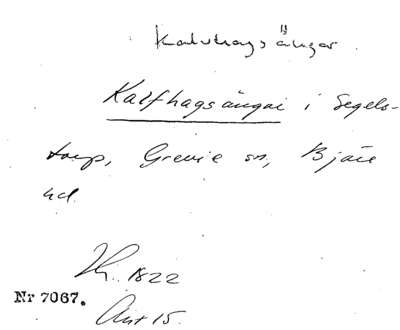 Kalvhagsängar
Kalfhagsängar i Segels-
torp, Grevie sn, Bjäre
hd.
1822
Nr 7067.
Akt 15.